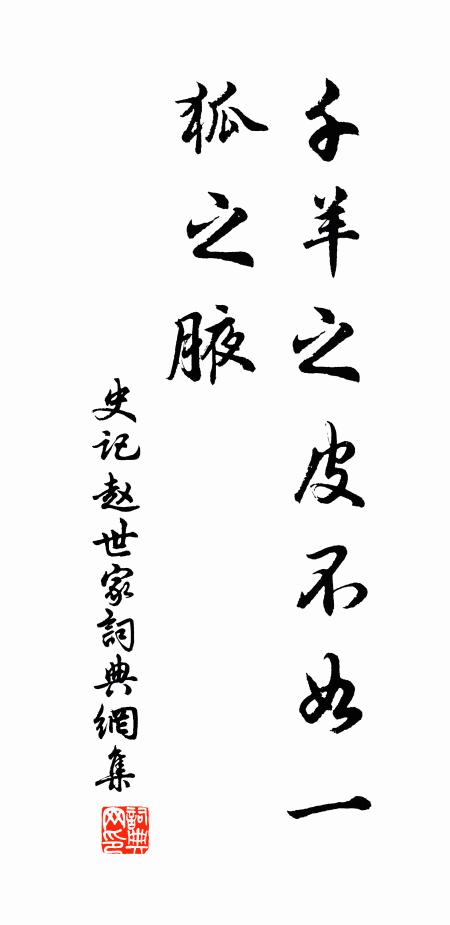 千羊之皮不如一
狐之腋
史记赵世家詞典網集
詞典网印